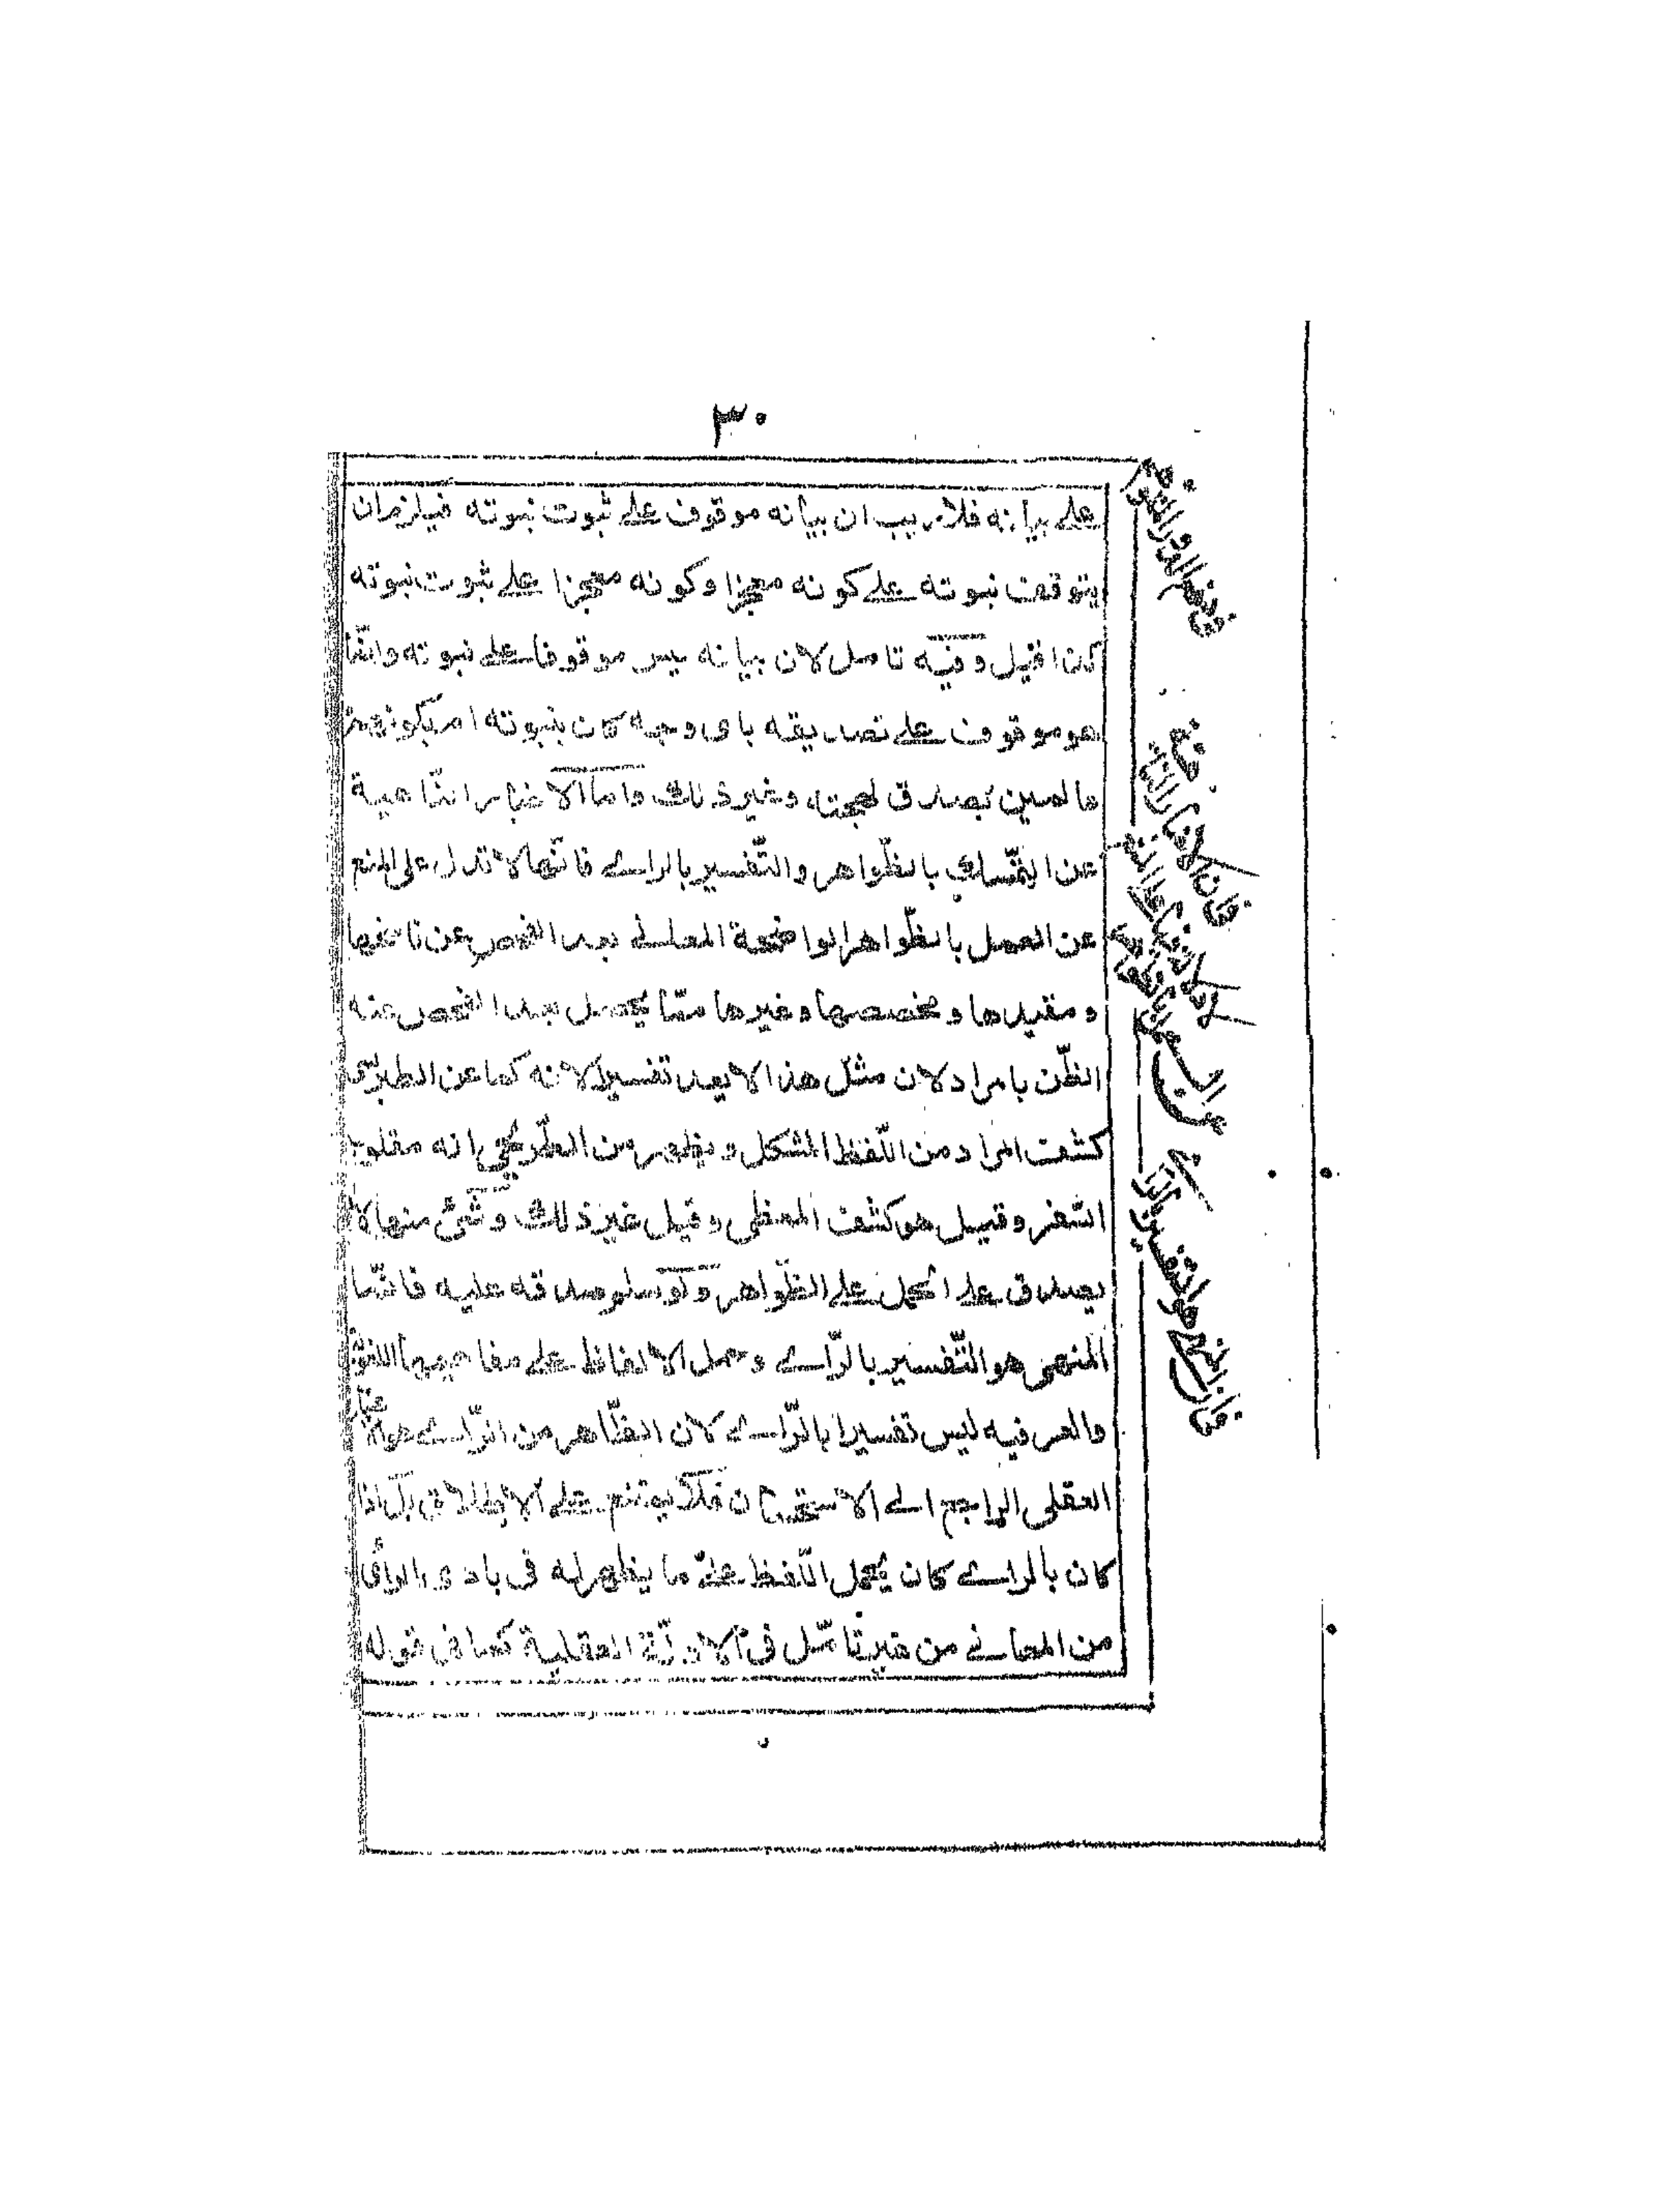 ٣٠
على بيانه فلا ريب ان بيانه موقوف على ثبوت نبوته فيلزم ان
يتوقف نبوته على كونه معجزا وكونه معجزا على ثبوت نبوته
كذا قيل وفيه تامل لان بيانه ليس موقوفا على نبوته وانما
هو موقوف على تصديقه باى وجه كان بنبوته ام بكونه من
عالمين بصدق لهجته وغير ذلك واما الاخبار الناهية
عن التمسك بالظواهر والتفسير بالراے فانها لا تدل على المنع
عن العمل بالظواهر الواضحة المعانے بعد الفحص عن ناسخها
و مقيدها و مخصصها وغيرها مما يحصل بعد الفحص عنه
الظن بامراد لان مثل هذا لا يعد تفسيرا لانه كما عن الطبرسى
كشف المراد من اللفظ المشكل ويظهر من الطريحى انه مقلوب
السفر وقيل هو كشف المغطى وقيل غير ذلك وشئ منها لا
يصدق على الحمل على الظواهر ولو سلم صدقه عليه فانما
المنهى هو التفسير بالرّاے وحمل الالفاظ على مفاهيمها اللغوية
والعرفيه ليس تفسيرا بالرّاے لان الظاهر من الرّاے هو الاعتبار
العقلى الراجع الے الاستحسان فلا يمتنع على الاطلاق بل اذا
كان بالراے كان يحمل اللّفظ على ما يظهر له فى بادى الرأى
من المعانے من غير تامّل فى الادلّة العقلية كما فى قوله
فان المنهى هو التفسير بالراے